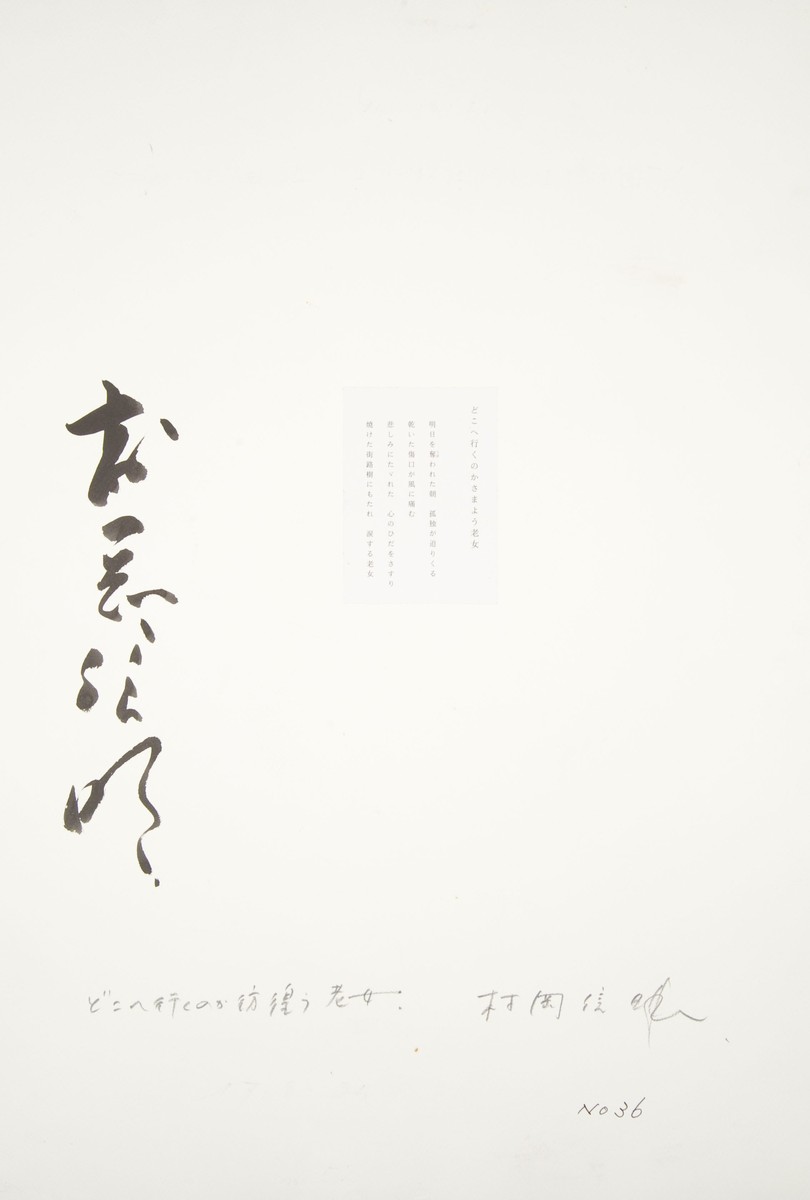 どこへ行くのかさまよう老女
明日を奪われた朝　孤独が迫りくる
乾いた傷口が風に痛む
悲しみにたゞれた　心のひだをさすり
焼けた街路樹にもたれ　涙する老女
村岡信明
どこへ行くのか彷徨う老女.
村岡信明
No 36